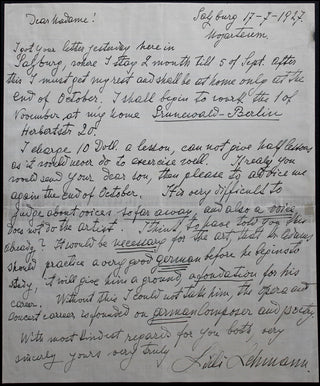 Dear Madame!
Salzburg 17-7-1927.
Mozarteum.
I got your letter yesterday here in
Salzburg, where I stay 2 month till 5 of Sept. After
this I must get my rest and shall be at home only at the
end of October. I shall begin to work the 1 of
November at my home Grunewald-Berlin
Herbertstr 20.
I charge 10 Doll. a lesson, can not give half lessons
as it would never do to exercise well. If really you
would send your dear son, then please to advice me
again the end of October. It is very difficult to
judge about voices so far away, and also a voice
does not do the artist. I think, to have told you this
already? It would be necessary for the art, that the
should practice a very good german before he begins to
study, it will give him a ground, a foundation for his
career. Without this I could not take him, the opera and
Concert career is founded on german Composer and poetry.
With most kindest regards for you both, very
sincerely yours very truly
Lilli Lehmann